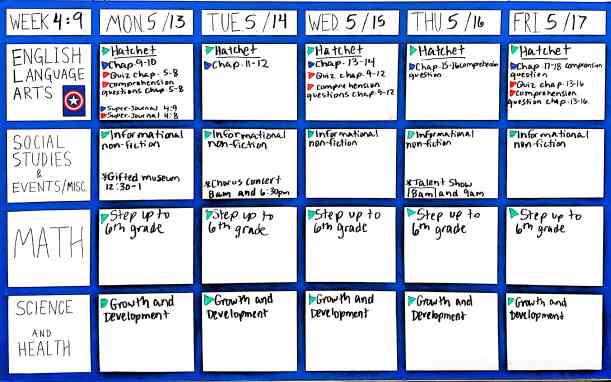 WEEK 4:9
MON 5/13
TUE 5/14
WED 5/15
THU 5/16
FRI 5/17
ENGLISH
LANGUAGE
ARTS
Hatchet
Chap 9-10
Quiz chap. 5-8
comprehension
questions chap. 5-8
Super-Journal 4:9
Super-Journal 4:8
Hatchet
Chap. 11-12
Hatchet
Chap. 13-14
Quiz chap. 9-12
comprehension
questions chap. 9-12
Hatchet
Chap. 15-16 comprehension
question
Hatchet
Chap. 17-18 comprension
question
Quiz chap. 13-16
Comprehension
question chap. 13-16
SOCIAL
STUDIES
&
EVENTS/MISC.
Informational
non-fiction
*Gifted museum
12:30-1
Informational
non-fiction
*Chorus Concert
8am and 6:30pm
Informational
non-fiction
Informational
non-fiction
*Talent Show
8am and 9am
Informational
non-fiction
MATH
Step up to
6th grade
Step up to
6th grade
Step up to
6th grade
Step up to
6th grade
Step up to
6th grade
SCIENCE
AND
HEALTH
Growth and
Development
Growth and
Development
Growth and
Development
Growth and
Development
Growth and
Development